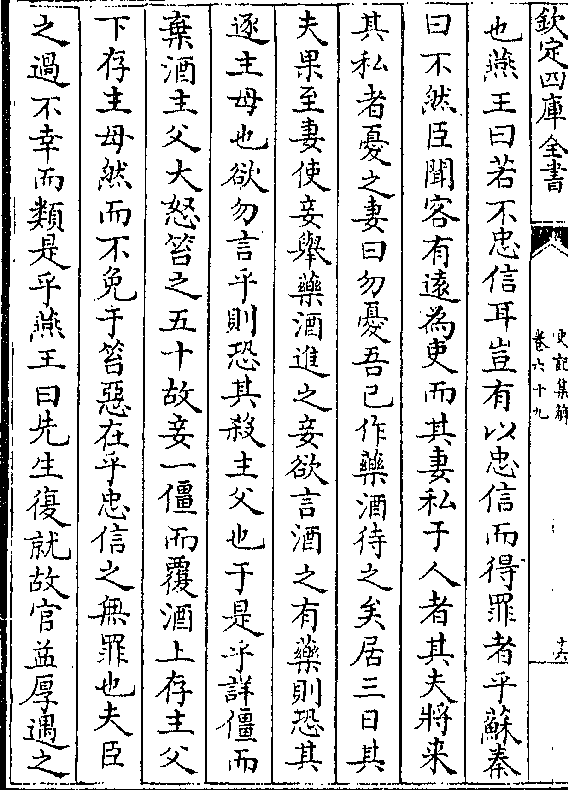 欽定四庫全書
史記集解
卷六十九
十六
也燕王曰若不忠信耳豈有以忠信而得罪者乎蘇秦
曰不然臣聞客有遠為吏而其妻私于人者其夫將来
其私者憂之妻曰勿憂吾已作藥酒待之矣居三日其
夫果至妻使妾舉藥酒進之妾欲言酒之有藥則恐其
逐主母也欲勿言乎則恐其殺主父也于是乎詳僵而
棄酒主父大怒笞之五十故妾一僵而覆酒上存主父
下存主母然而不免于笞惡在乎忠信之無罪也夫臣
之過不幸而類是乎燕王曰先生復就故官益厚遇之